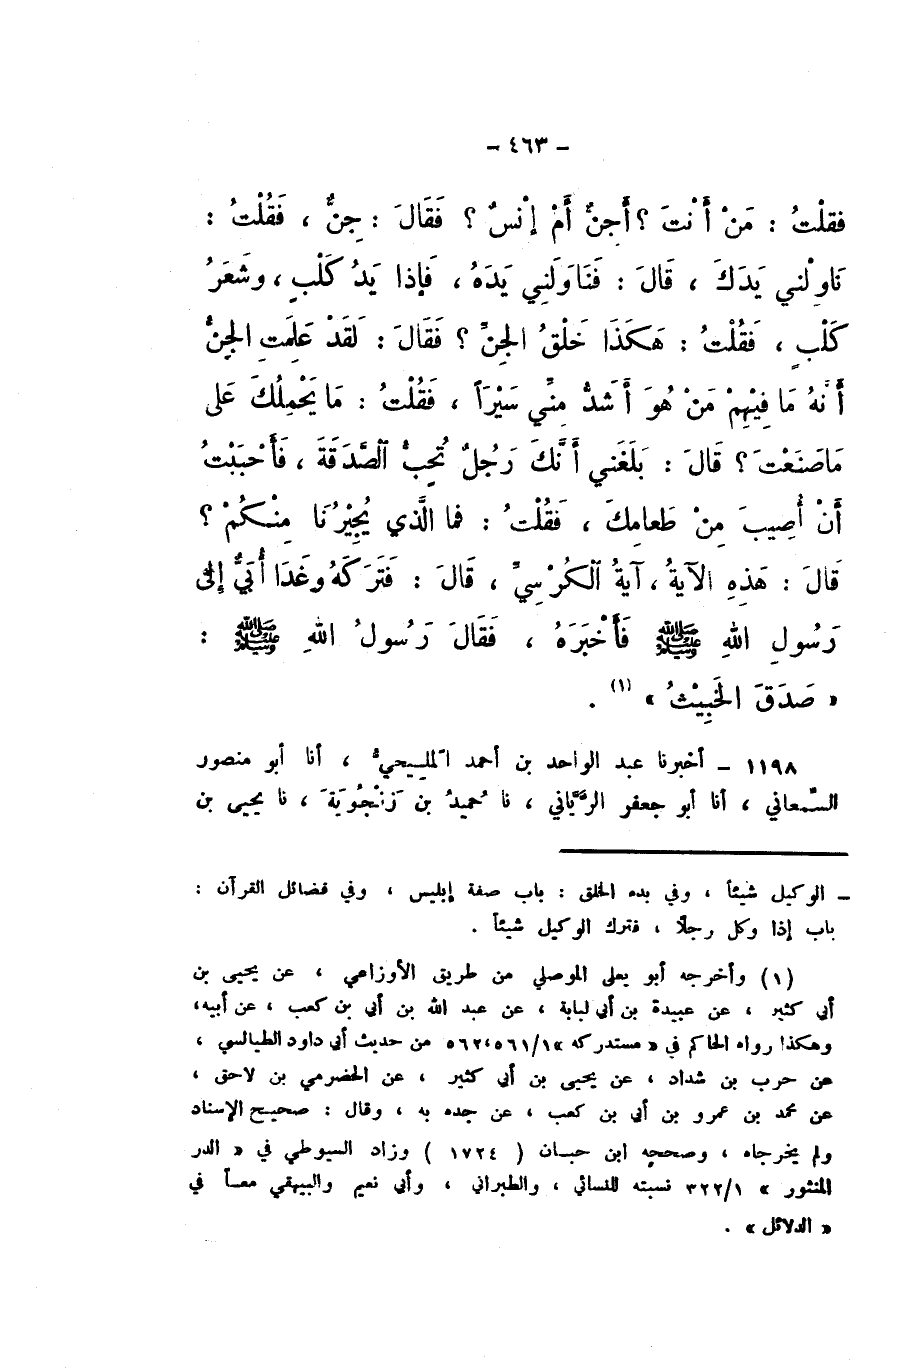 – ٤٦٣ –
فَقُلْتُ : مَنْ أَنْتَ ؟ أَجِنٌّ أَمْ إِنْسٌ ؟ فَقَالَ : جِنٌّ ، فَقُلْتُ :
نَاوِلْني يَدَكَ ، قَالَ : فَنَاوَلَنِي يَدَهُ ، فَإِذا يَدُ كَلْبٍ ، وشَعَرُ
كَلْبٍ ، فَقُلْتُ : هَكَذَا خَلْقُ الجِنِّ ؟ فَقَالَ : لَقَدْ عَلِمَتِ الجِنُّ
أَنَّهُ مَا فِيْهِمْ مَنْ هُوَ أَشَدُّ مِنِّي سَيْرَاً ، فَقُلْتُ : مَا يَحْمِلُكَ عَلى
مَاصَنَعْتَ ؟ قَالَ : بَلَغَني أَنَّكَ رَجُلٌ تُحِبُّ الصَّدَقَةَ ، فَأَحْبَبْتُ
أَنْ أُصِيبَ مِنْ طَعامِكَ ، فَقُلْتُ : فما الَّذي يُجِيْرُنَا مِنْكُمْ ؟
قَالَ : هَذِهِ الآيةُ ، آيةُ الكُرْسِيِّ ، قَالَ : فَتَرَكَهُ وغَدَا أُبَيٌّ إِلىٰ
رَسُولِ اللهِ ﷺ فَأَخْبَرَهُ ، فَقَالَ رَسُولُ اللهِ ﷺ :
« صَدَقَ الخَبِيْثُ » (١) .
١١٩٨ – أخبرنا عبد الواحد بن أحمد المَليحيُّ ، أنا أبو منصور
السَّمعاني ، أنا أبو جعفر الرَّيَّاني ، نا حُميدُ بن زَنْجُوَيَةَ ، نا يحيى بن
– الوكيل شيئاً ، وفي بدء الخلق : باب صفة إبليس ، وفي فضائل القرآن :
باب إذا وكل رجلاً ، فترك الوكيل شيئاً .
(١) وأخرجه أبو يعلى الموصلي من طريق الأوزاعي ، عن يحيى بن
أبي كثير ، عن عبيدة بن أبي لبابة ، عن عبد الله بن أبي بن كعب ، عن أبيه،
وهكذا رواه الحاكم في « مستدركه »٥٦٢،٥٦١/١ من حديث أبي داود الطيالسي ،
عن حرب بن شداد ، عن يحيى بن أبي كثير ، عن الحضرمي بن لاحق ،
عن محمد بن عمرو بن أبي بن كعب ، عن جده به ، وقال : صحيح الإسناد
ولم يخرجاه ، وصححه ابن حبان ( ١٧٢٤ ) وزاد السيوطي في « الدر
المنثور » ٣٢٢/١ نسبته للنسائي ، والطبراني ، وأبي نعيم والبيهقي معاً في
« الدلائل » .